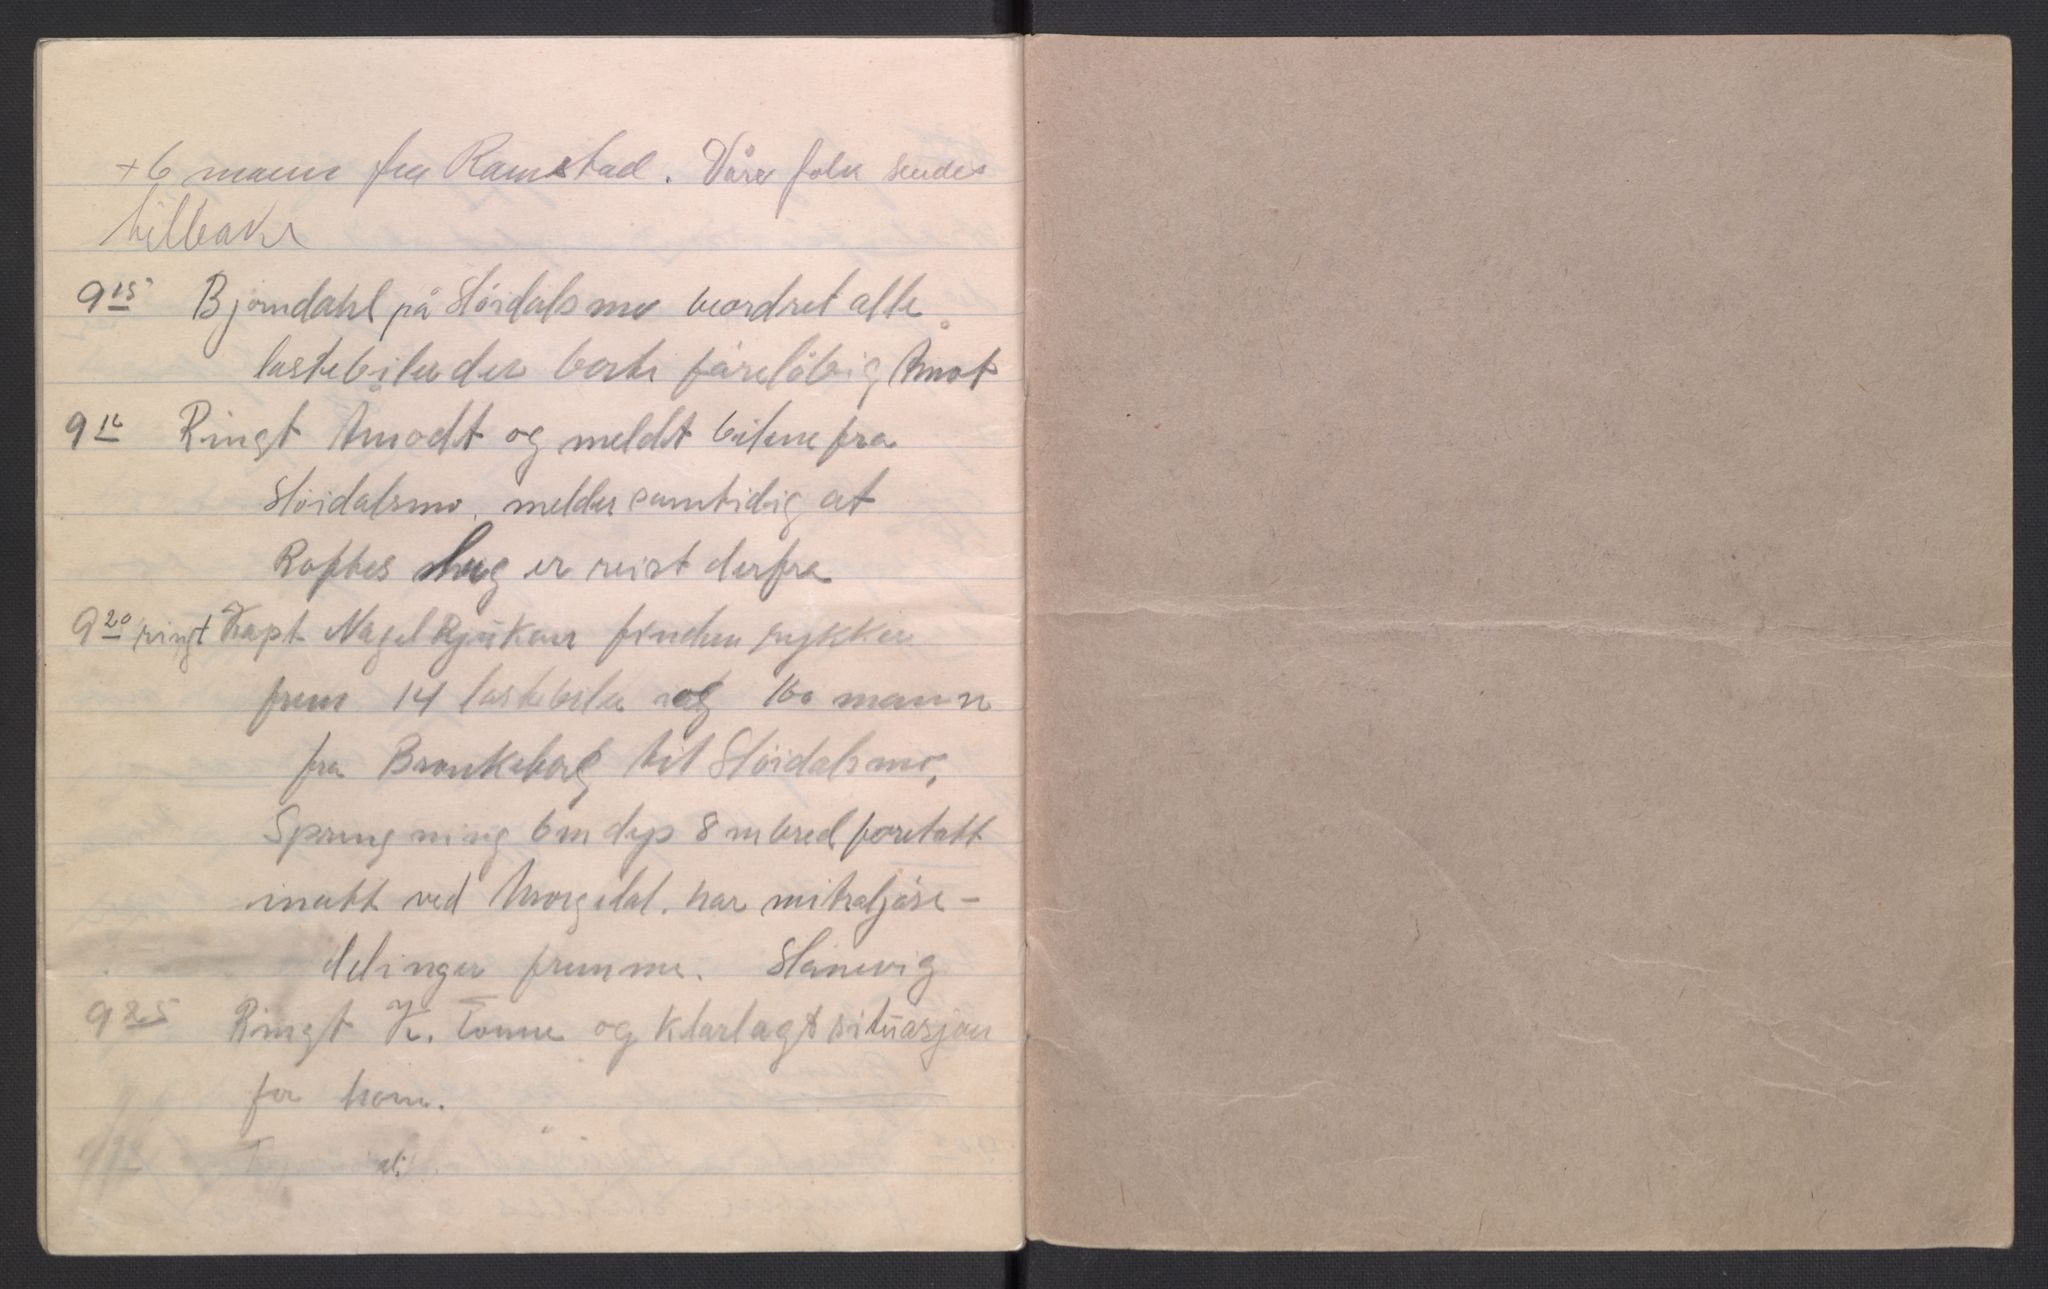 +6 mann fra Ramstad. Våre folk sendes
tilbake
9 15 Bjørndahl på Höidalsmo beordret alle
lastebiler der borte foreløbig Åmot
9 16 Ringt Åmodt og meldt bilene fra
Höidalsmo. melder samtidig at
er reist derfra
9 20 ringt Kapt Nagel Rjukan finden rykker
frem 14 lastebiler og 160 mann
fra Brunkeberg til Höidalsmo.
Sprengning 6 m dyp 8 m bred foretatt
inatt ved Morgedal. har mitraljöse-
delinger fremme. Hanevig
9 25 Ringt K. Tonne og klarlagt situasjon
for ham.